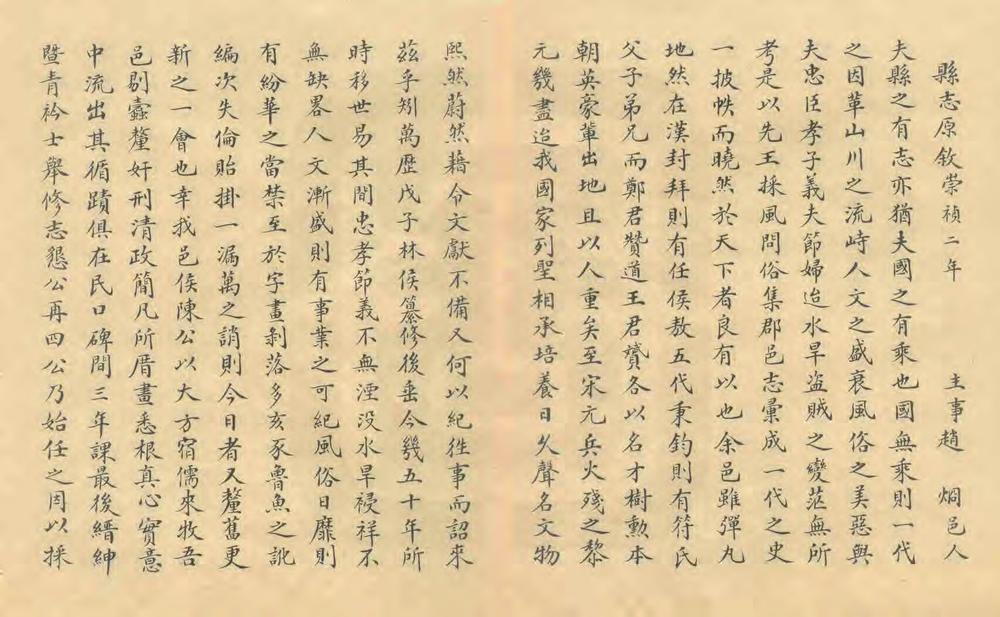 縣志原敘崇禎二年 主事趙 烱邑人
夫縣之有志亦猶夫國之有乘也國無乘則一代
之因革山川之流峙人文之盛衰風俗之美惡與
夫忠臣孝子義夫節婦迨水旱盗賊之變茫無所
考是以先王採風問俗集郡邑志彙成一代之史
一披帙而曉然於天下者良有以也余邑雖彈丸
地然在漢封拜則有任侯敖五代秉鈞則有符氏
父子弟兄而鄭君贊道王君贇各以名才樹勳本
朝英豪輩出地且以人重矣至宋元兵火殘之黎
元幾盡迨我國家列聖相承培養日久聲名文物
熙然蔚然藉令文獻不備又何以紀徃事而詔來
茲乎矧萬歷戊子林侯纂修後垂今幾五十年所
時移世易其間忠孝節義不無湮没水旱祲祥不
無缺畧人文漸盛則有事業之可紀風俗日靡則
有紛華之當禁至於字畫剝落多亥豕魯魚之訛
編次失倫貽掛一漏萬之誚則今日者又釐舊更
新之一會也幸我邑侯陳公以大方宿儒來牧吾
邑剔蠹釐奸刑清政簡凡所厝畫悉根真心實意
中流出其循蹟俱在民口碑間三年課最後縉紳
暨青衿士舉修志懇公再四公乃始任之周以採